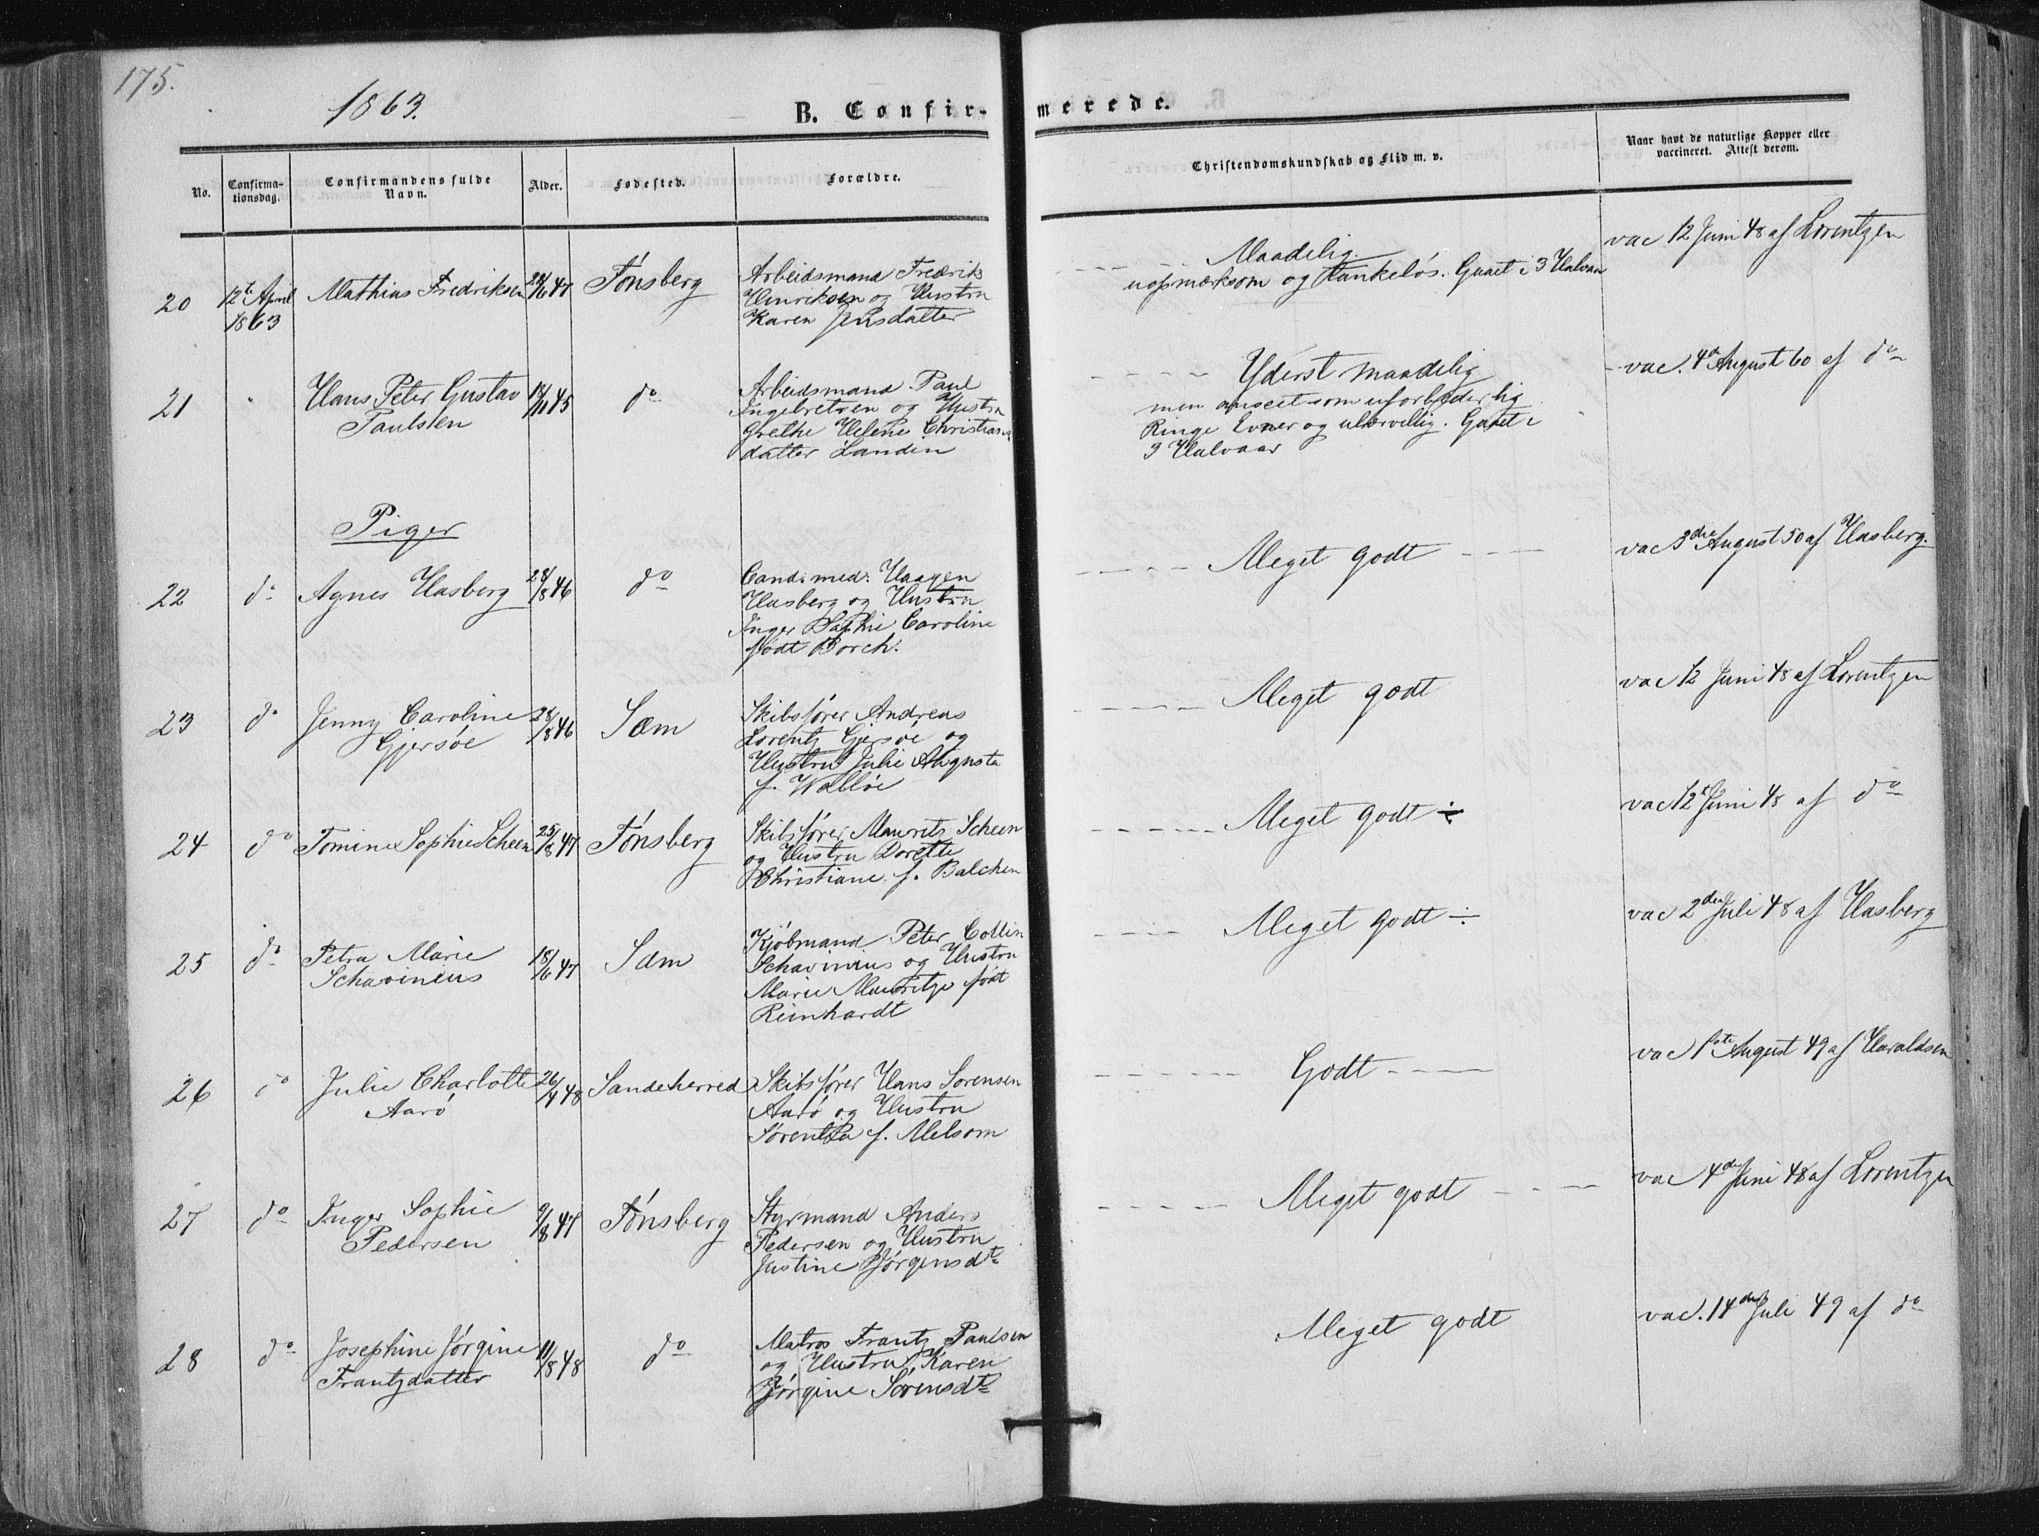 175.
1863.
B. Confirmerede.
No.
Confirmationsdag.
Confirmandens fulde Navn.
Alder.
Fødested.
Forældre.
Christendomskundskab og Flid m. v.
Naar havt de naturlige Kopper eller
vaccineret. Attest derom.
20
12t April
1863
Mathias Fredriksen
47
Tønsberg
Arbeidsmand Fredrik
Henriksen og Hustru
Karen Jensdatter
Maadelig
uopmærksom og tankeløs. Gaaet i 3 Halvaar
vac 12 Juni 48 af Lorentzen
21
"
Hans Peter Gustav
Paulsen
45
do
Arbeidsmand Paul
Ingebretsen og Hustru
Grethe Helene Christians
datter Landin
Yderst maadelig
men anseet som uforbederlig
Ringe Evner og ulærvillig. Gaaet i
3 Halvaar
vac. 4de August 60 af do
Piger
22
do
Agnes Hasberg
28/8 46
do
Cand. med. Haagen
Hasberg og Hustru
Inger Sophie Caroline
født Borch.
Meget godt
vac 3die August 50 af Hasberg.
23
do
Jenny Caroline
Gjersøe
28/8 46
Sæm
Skibsfører Andreas
Lorentz Gjersøe og
Hustru Julie Augusta
f. Walløe
Meget godt
vac 12 Juni 48 af Lorentzen
24
do
Tomine Sophie Scheen
25/8 47
Tønsberg
Skibsfører Mauritz Scheen
og Hustru Dorette
Christiane f. Balchen
Meget godt ÷
vac 12t Juni 48 af do
25
do
Petra Marie
Schavinius
18/6 47
Sæm
Kjøbmand Peter Collin
Schavinius og Hustru
Marie Mauritze født
Reinhardt
Meget godt ÷
vac 2den Juli 48 af Hasberg
26
do
Julie Charlotte
Aarø
26/4 48
Sandeherred
Skibsfører Hans Sorensen
Aarø og Hustru
Sørentha f. Melsom
Godt
vac 1ste August 49 af Haraldsen
27
do
Inger Sophie
Pedersen
9/8 47
Tønsberg
Styrmand Anders
Pedersen og Hustru
Justine Jørgensdt
Meget godt
vac 4de Juni 48 af Lorentzen
28
do
Josephine Jørgine
Frantzdatter
11/8 48
do
Matros Frantz Paulsen
og Hustru Karen
Jørgine Sörensdt
Meget godt
vac. 14de Juli 49 af do